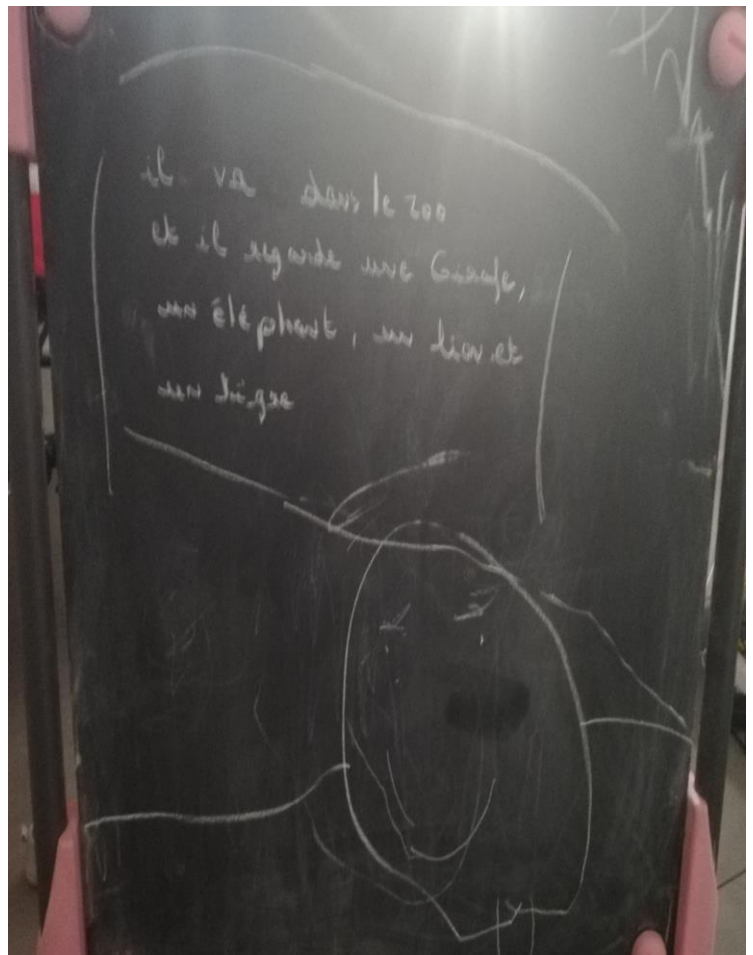 il va dans le zoo
et il regarde une Girafe,
un éléphant, un lion et
un tigre